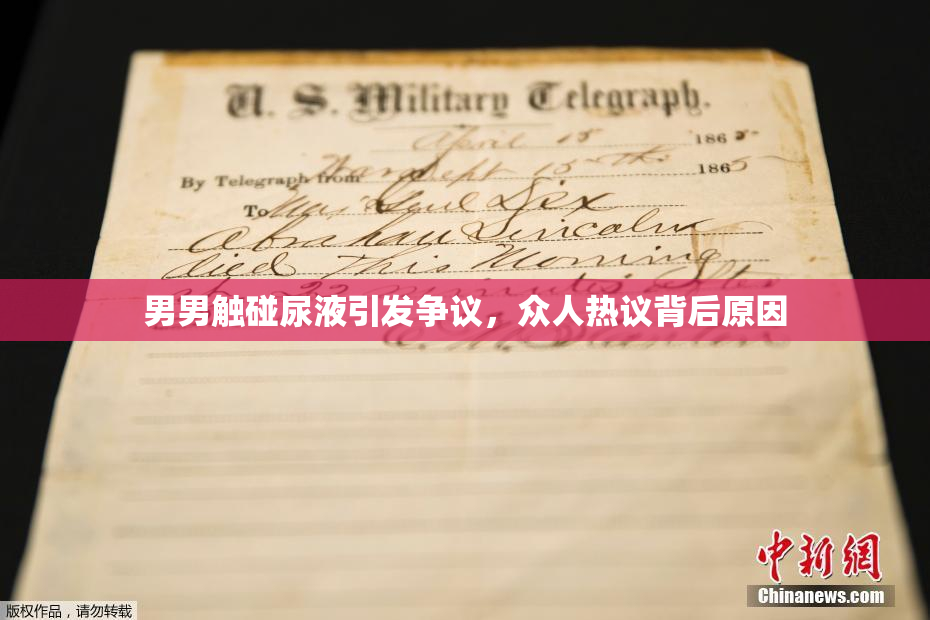 U. S. Military Telegraph.
April 15 1865
By Telegraph from War Dept 15th 1865
To Maj Genl Dix
Abraham Lincoln
died This Morning
at 22 minutes after
男男触碰尿液引发争议，众人热议背后原因
中新网
Chinanews.com
版权作品，请勿转载